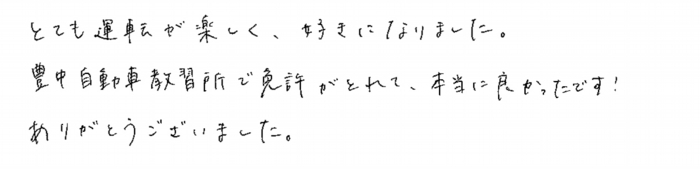 とても運転が楽しく、好きになりました。
豊中自動車教習所で免許がとれて、本当に良かったです!
ありがとうございました。